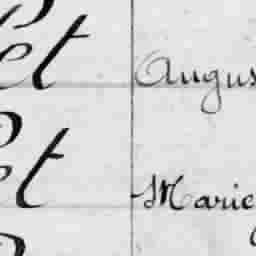 et Augus
et Marie